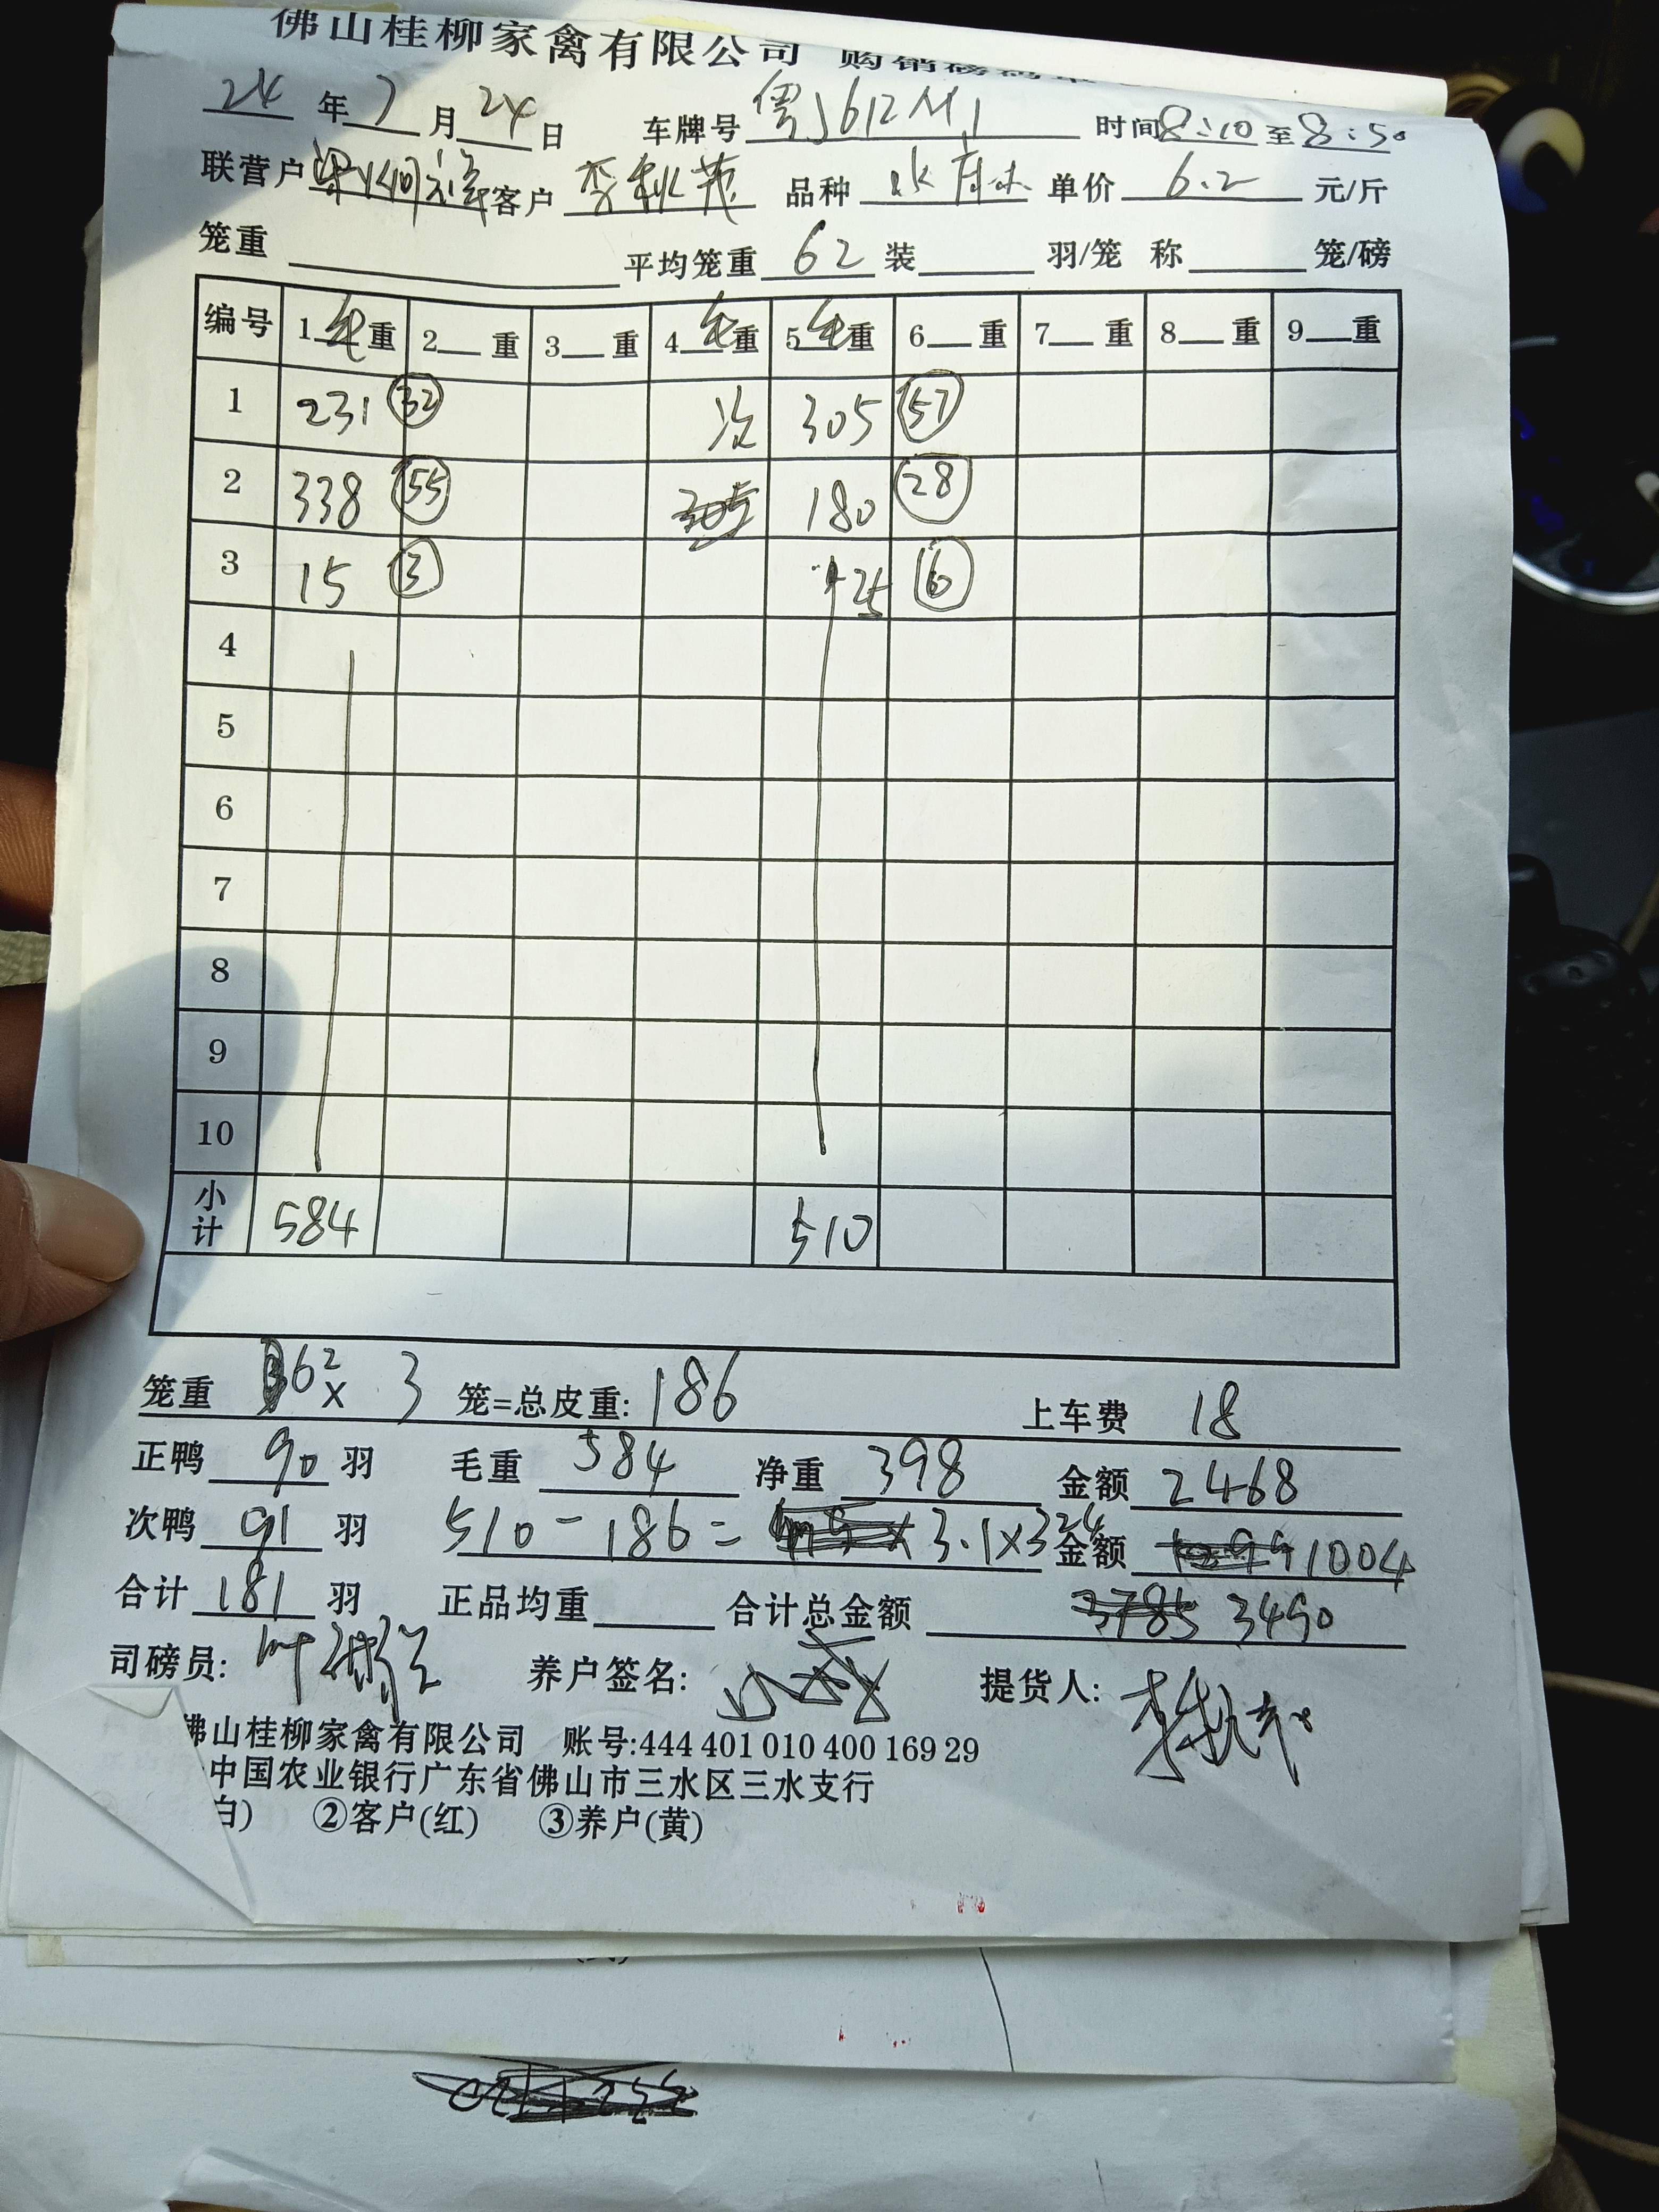 佛山桂柳家禽有限公司 购销磅码单
24 年 7 月 24 日 车牌号 粤J612M1 时间 8:10 至 8:50
联营户 客户 李秋茂 品种 单价 6.2 元/斤
笼重 平均笼重 62 装 羽/笼 称 笼/磅
编号 1 毛 重 2 重 3 重 4 毛 重 5 毛 重 6 重 7 重 8 重 9 重
1 231 32 次 305 57
2 338 55 305 180 28
3 15 3 25 6
4
5
6
7
8
9
10
小计 584 510
笼重 62 x 3 笼=总皮重: 186 上车费 18
正鸭 90 羽 毛重 584 净重 398 金额 2468
次鸭 91 羽 510 - 186 = 3.1x324 金额 1004
合计 181 羽 正品均重 合计总金额 3785 3490
司磅员: 养户签名: 提货人: 李秋茂
佛山桂柳家禽有限公司 账号:444 401 010 400 169 29
中国农业银行广东省佛山市三水区三水支行
白) ②客户(红) ③养户(黄)